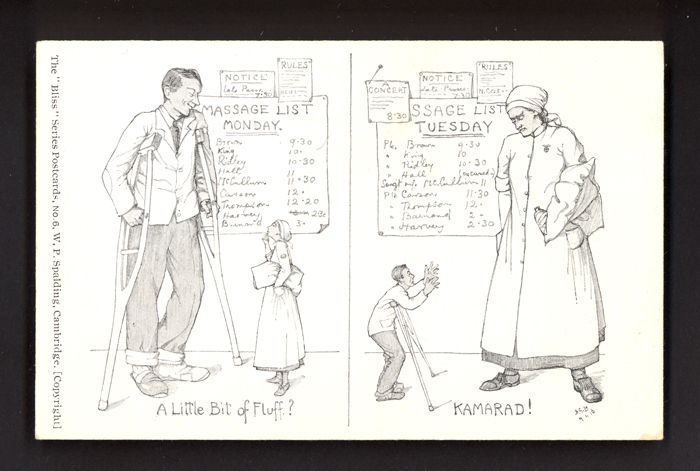 The "Bliss" Series Postcards, No. 6, W. P. Spalding, Cambridge. [Copyright]
NOTICE
Late Passes
9.30
RULES
MASSAGE LIST
MONDAY.
Brown 9.30
King 10.
Ridley 10.30
Hall 11
McCallum 11.30
Carson 12.
Thompson 12.20
Harvey 230
Barnard 3.
A Little Bit of Fluff.?
A
CONCERT
8.30
NOTICE
Late Passes
"RULES"
SSAGE LIST
TUESDAY
Pte. Brown 9.30
" King 10
" Ridley 10.30
" Hall
Sergt McCallum 11
Pte Carson 11.30
" Thompson 12.
" Barnard 2 -
" Harvey 2.30
KAMARAD!